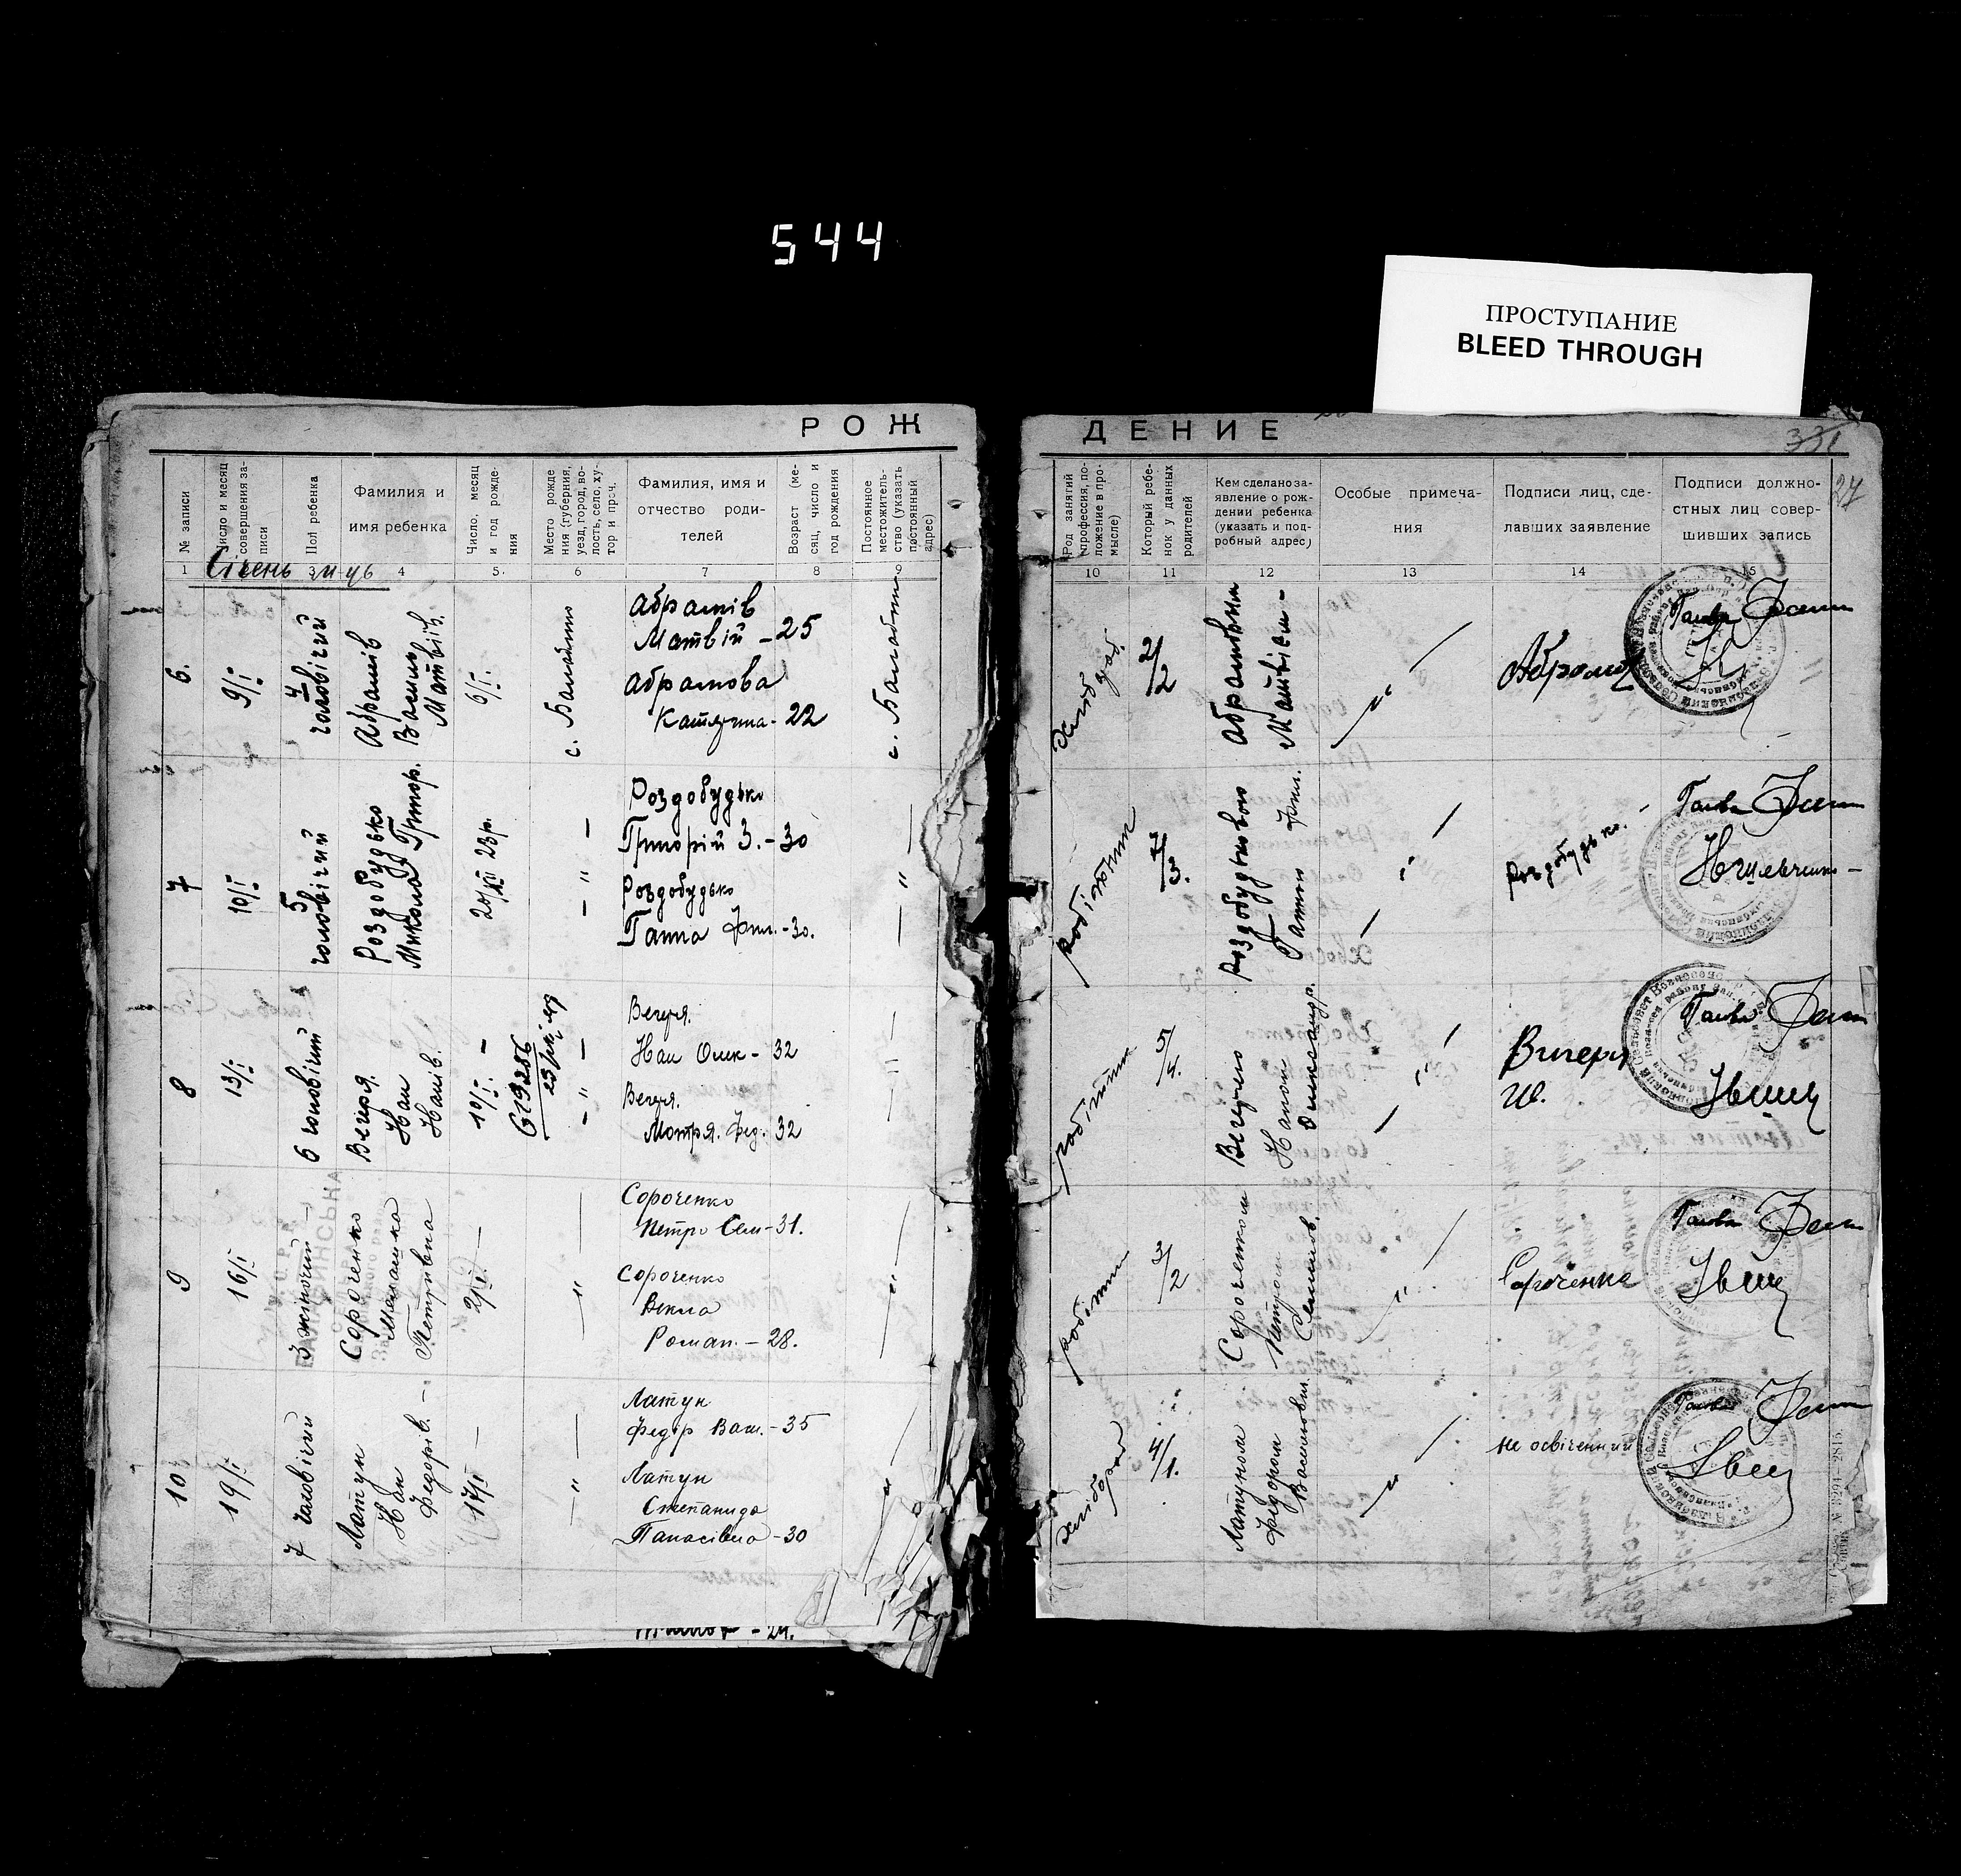 544
ПРОСТУПАНИЕ
BLEED THROUGH
РОЖ
ДЕНИЕ
331
27
№ записи
Число и месяц совершения записи
Пол ребенка
Фамилия и
имя ребенка
Число, месяц
и год рожде-
ния
Место рожде
ния (губерния,
уезд, город, во-
лость, село, ху-
тор и проч.
Фамилия, имя и
отчество роди-
телей
Возраст (ме-
сяц, число и
год рождения
Постоянное
местожитель-
ство (указать
постоянный
адрес)
Род занятий
(профессия, по-
ложение в про-
мысле)
Который ребе-
нок у данных
родителей
Кем сделано за-
явление о рож-
дении ребенка
(указать и под-
робный адрес)
Особые примеча-
ния
Подписи лиц, сде-
лавших заявление
Подписи должно-
стных лиц совер-
шивших запись
1
3
4
5.
6
7
8
9
10
11
12
13
14
15
Січень м-ць
6.
9/I
4
чоловічий
Абрамів
Василь
Матвіїв.
6/I.
с. Балабино
Абрамів
Матвій - 25
Абрамова
Катерина - 22
с. Балабино
2/2
Матвієм -
Голова
7
10/I
5
чоловічий
Роздобудько
Микола Григор.
20/XII 23 р.
- " -
Роздобудько
Григорій З. - 30
Роздобудько
Ганна Фил. - 30.
- " -
робітник
7/3.
Роздобудьковою
Ганною Фил.
Роздобудько.
Голова
8
13/I
6 чоловічий
Вечеря.
Іван
Іванів.
10/I. -
- " -
Вечеря.
Іван Олек - 32
Вечеря.
Мотря. Фед. 32
- " -
робітник
5/4.
Вечерею
Іваном
Олександр.
Вечеря
Голова
9
16/I
3 жіночий -
Сороченко
Меланка
Петрівна
2/I. -
- " -
Сороченко
Петро Сем - 31.
Сороченко
Векла
Роман. - 28.
- " -
робітник
3/2
Сороченком
Петром
Семенов.
Сороченко
Голова
10
19/I
7 чоловічий
Латун
Іван
Федорів. -
17/I -
- " -
Латун
Федір Вас. - 35
Латун
Степанида
Панасівна - 30
хлібороб
4/1.
Латуном
Федором
Василіович.
не освіченний
Голова
- 24.